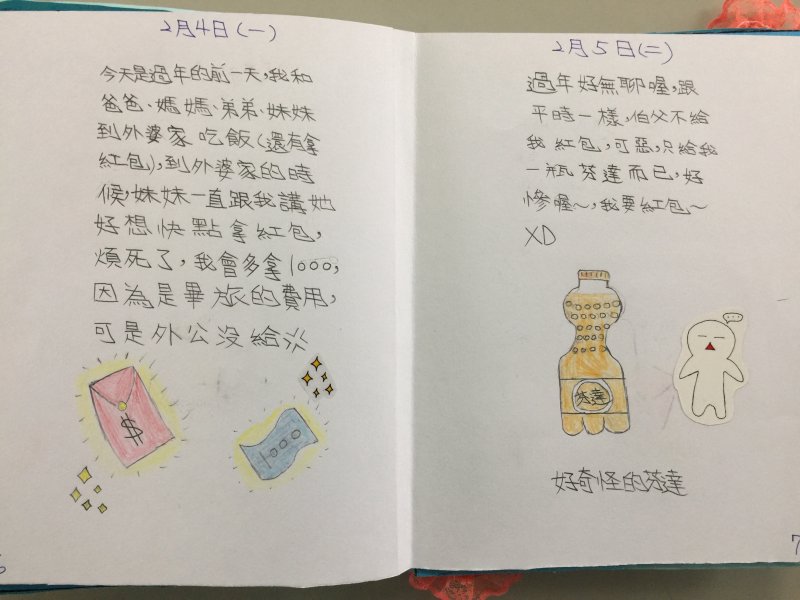 2月4日(一)
今天是過年的前一天,我和
爸爸、媽媽、弟弟、妹妹
到外婆家吃飯(還有拿
紅包),到外婆家的時
候,妹妹一直跟我講她
好想快點拿紅包,
煩死了,我會多拿1000,
因為是畢旅的費用,
可是外公沒給
$
1000
2月5日(二)
過年好無聊喔,跟
平時一樣,伯父不給
我紅包,可惡,只給我
一瓶芬達而已,好
慘喔~,我要紅包~
XD
...
芬達
好奇怪的芬達
7